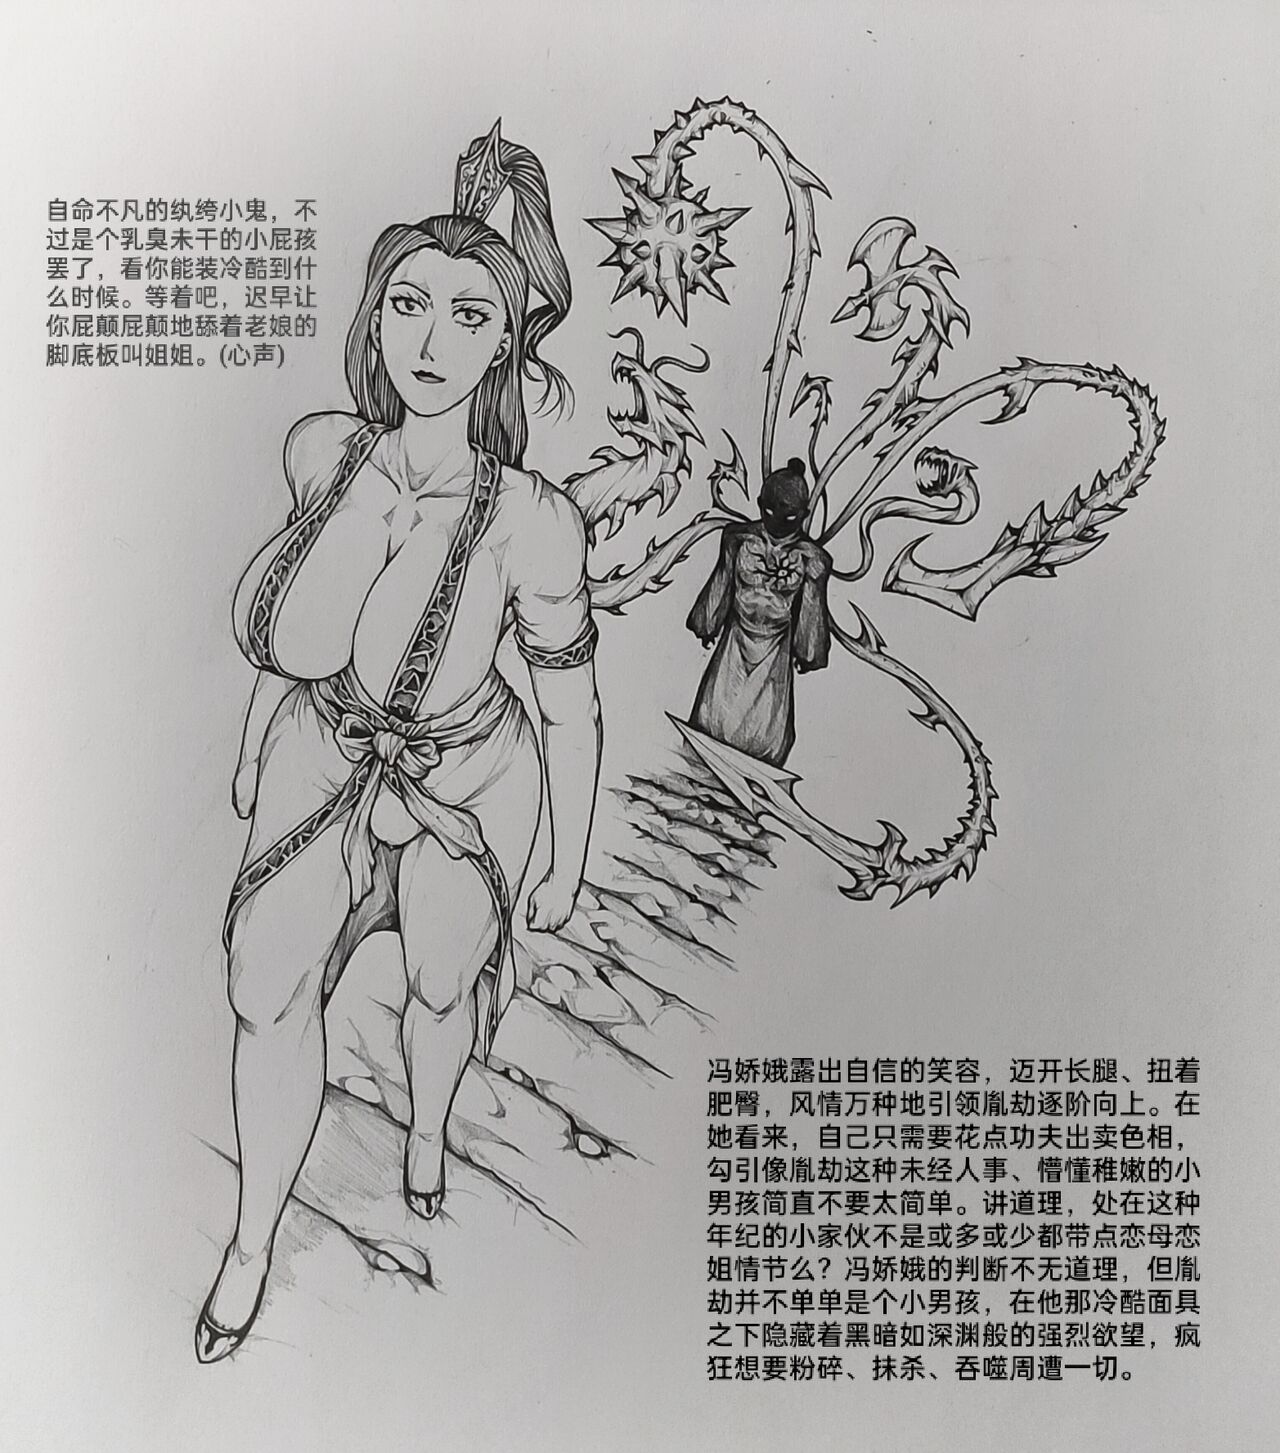 自命不凡的纨绔小鬼，不
过是个乳臭未干的小屁孩
罢了，看你能装冷酷到什
么时候。等着吧，迟早让
你屁颠屁颠地舔着老娘的
脚底板叫姐姐。(心声)
冯娇娥露出自信的笑容，迈开长腿、扭着
肥臀，风情万种地引领胤劫逐阶向上。在
她看来，自己只需要花点功夫出卖色相，
勾引像胤劫这种未经人事、懵懂稚嫩的小
男孩简直不要太简单。讲道理，处在这种
年纪的小家伙不是或多或少都带点恋母恋
姐情节么？冯娇娥的判断不无道理，但胤
劫并不单单是个小男孩，在他那冷酷面具
之下隐藏着黑暗如深渊般的强烈欲望，疯
狂想要粉碎、抹杀、吞噬周遭一切。